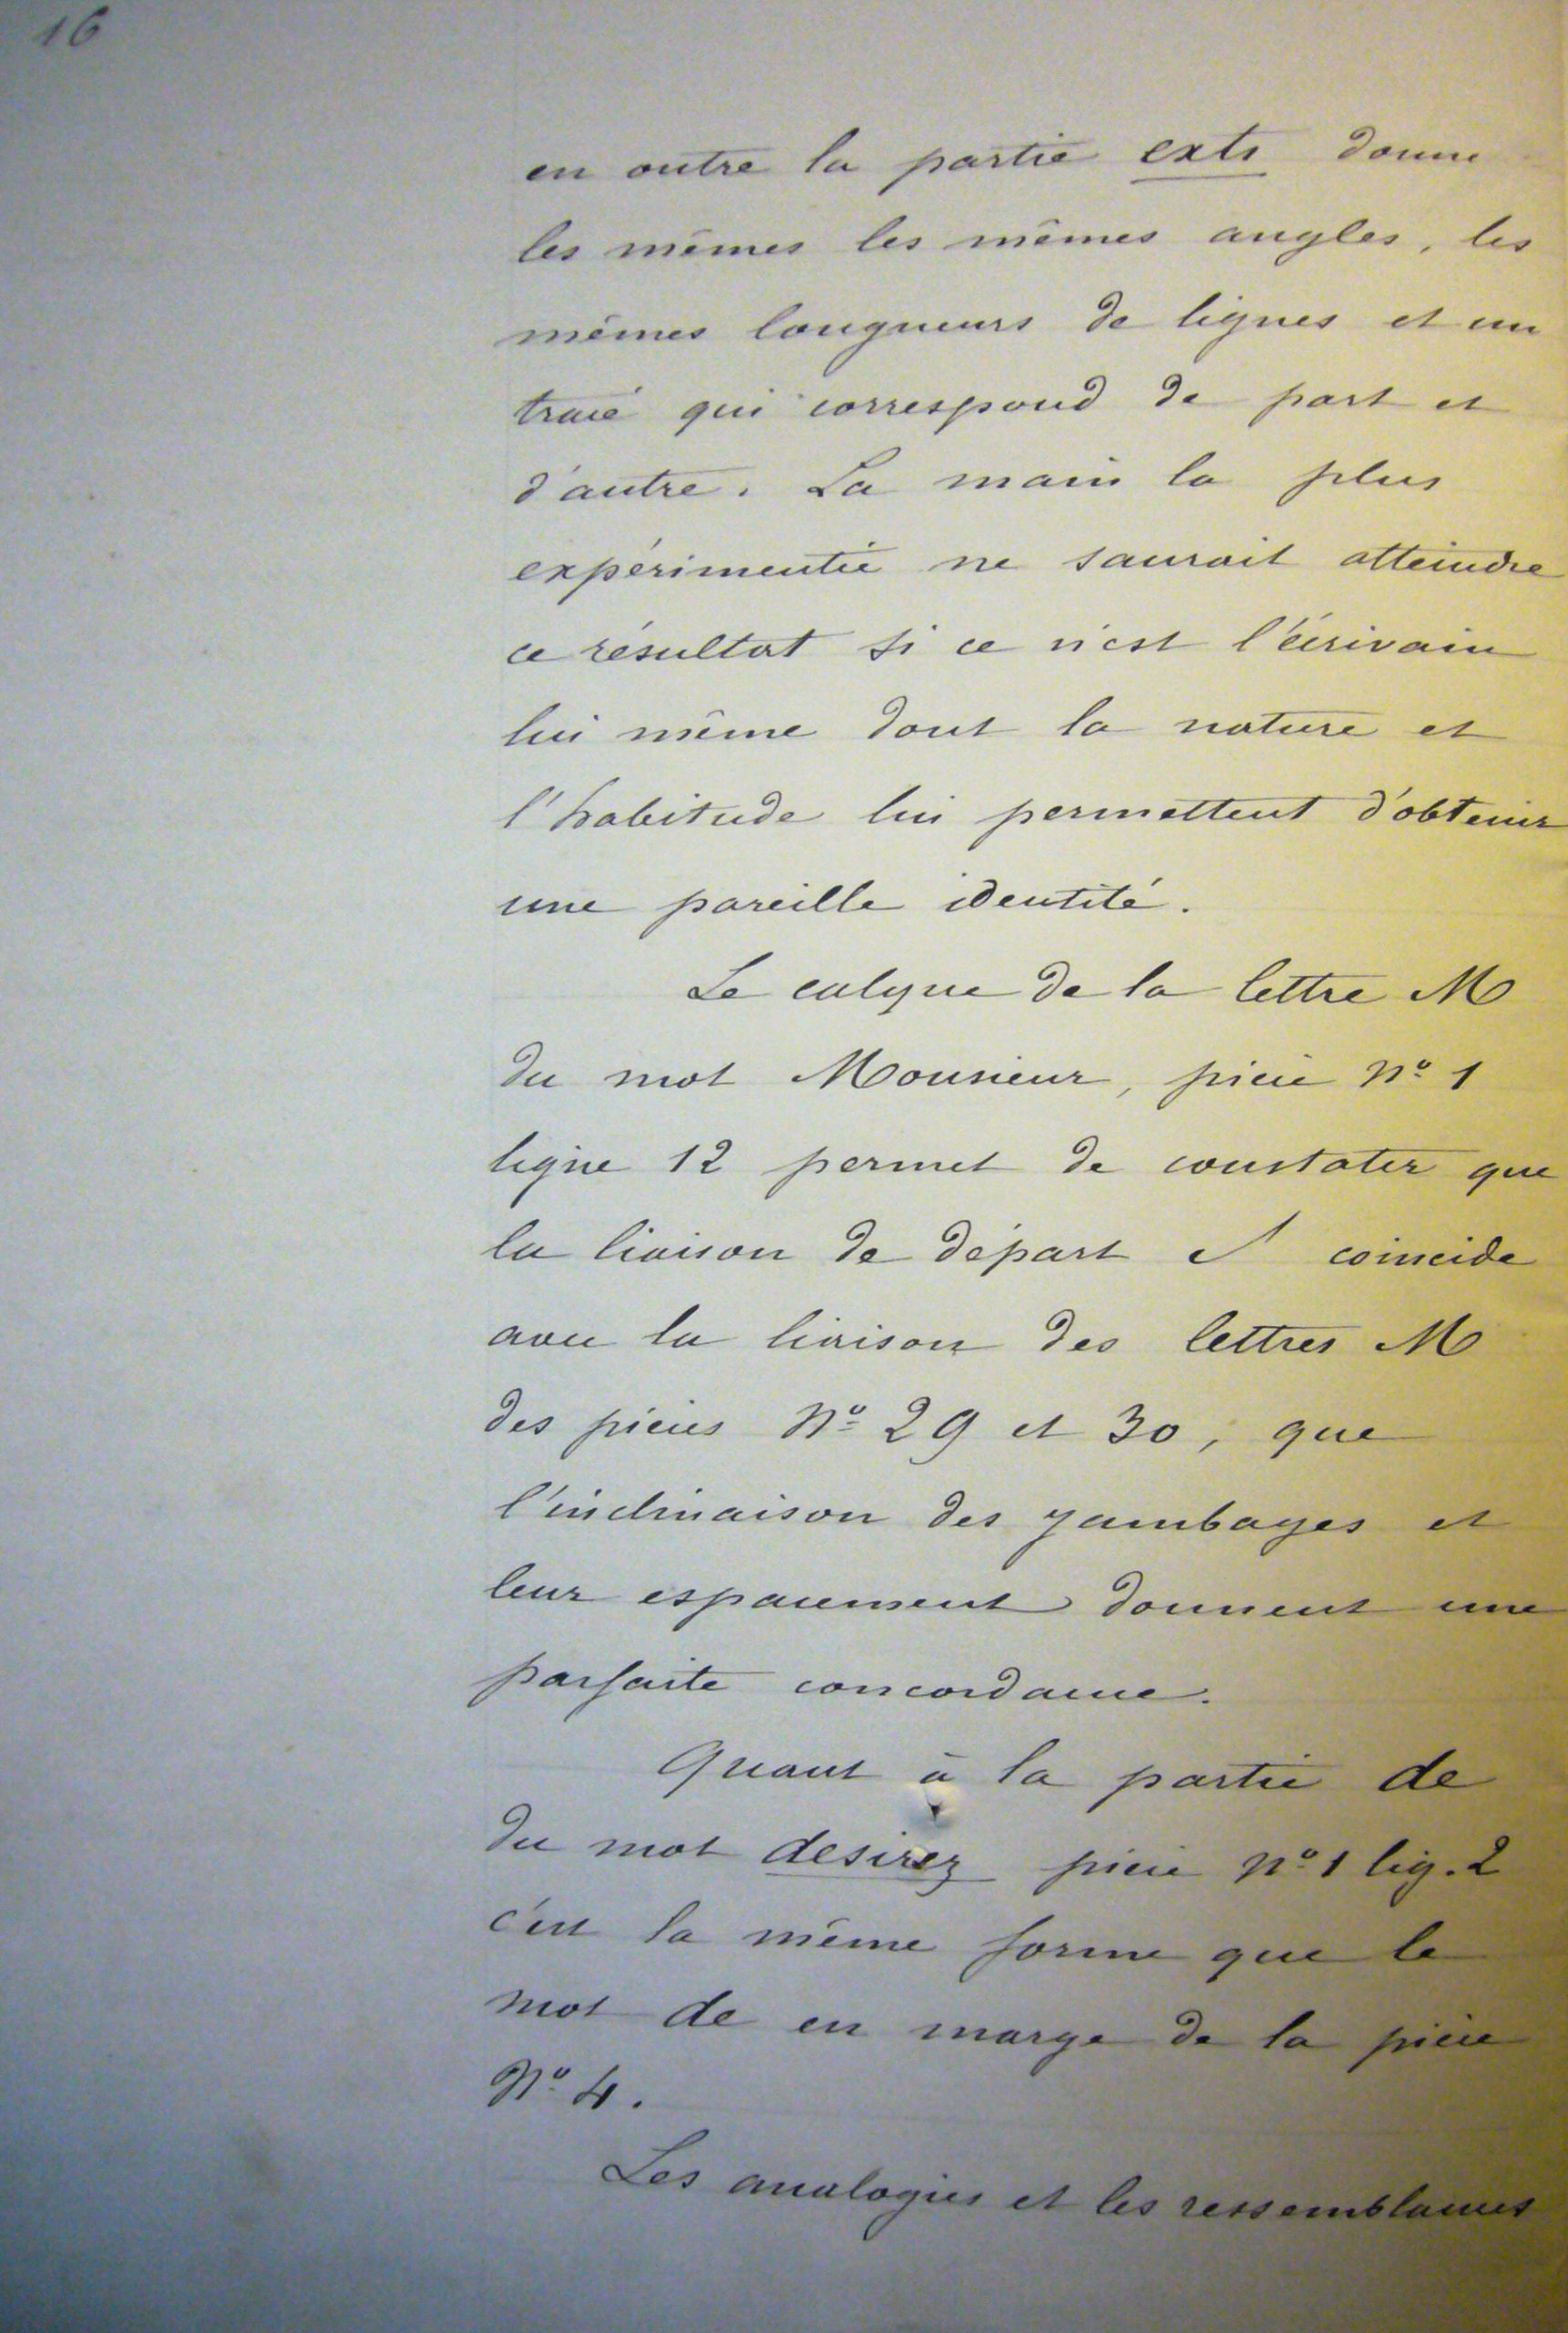 16
en outre la partie exts donne
les mêmes les mêmes angles, les
mêmes longueurs de lignes et un
tracé qui correspond de part et
d'autre. La main la plus
expérimentée ne saurait atteindre
ce résultat si ce n'est l'écrivain
lui même dont la nature et
l'habitude lui permettent d'obtenir
une pareille identité.
Le calque de la lettre M
du mot Monsieur, pièce No 1
ligne 12 permet de constater que
la liaison de départ coincide
avec la liaison des lettres M
des pièces No 29 et 30, que
l'inclinaison des jambages et
leur espacement donnent une
parfaite concordance.
Quant à la partie de
du mot desirez pièce No 1 lig. 2
c'est la même forme que le
mot de en marge de la pièce
No 4.
Les analogies et les ressemblances